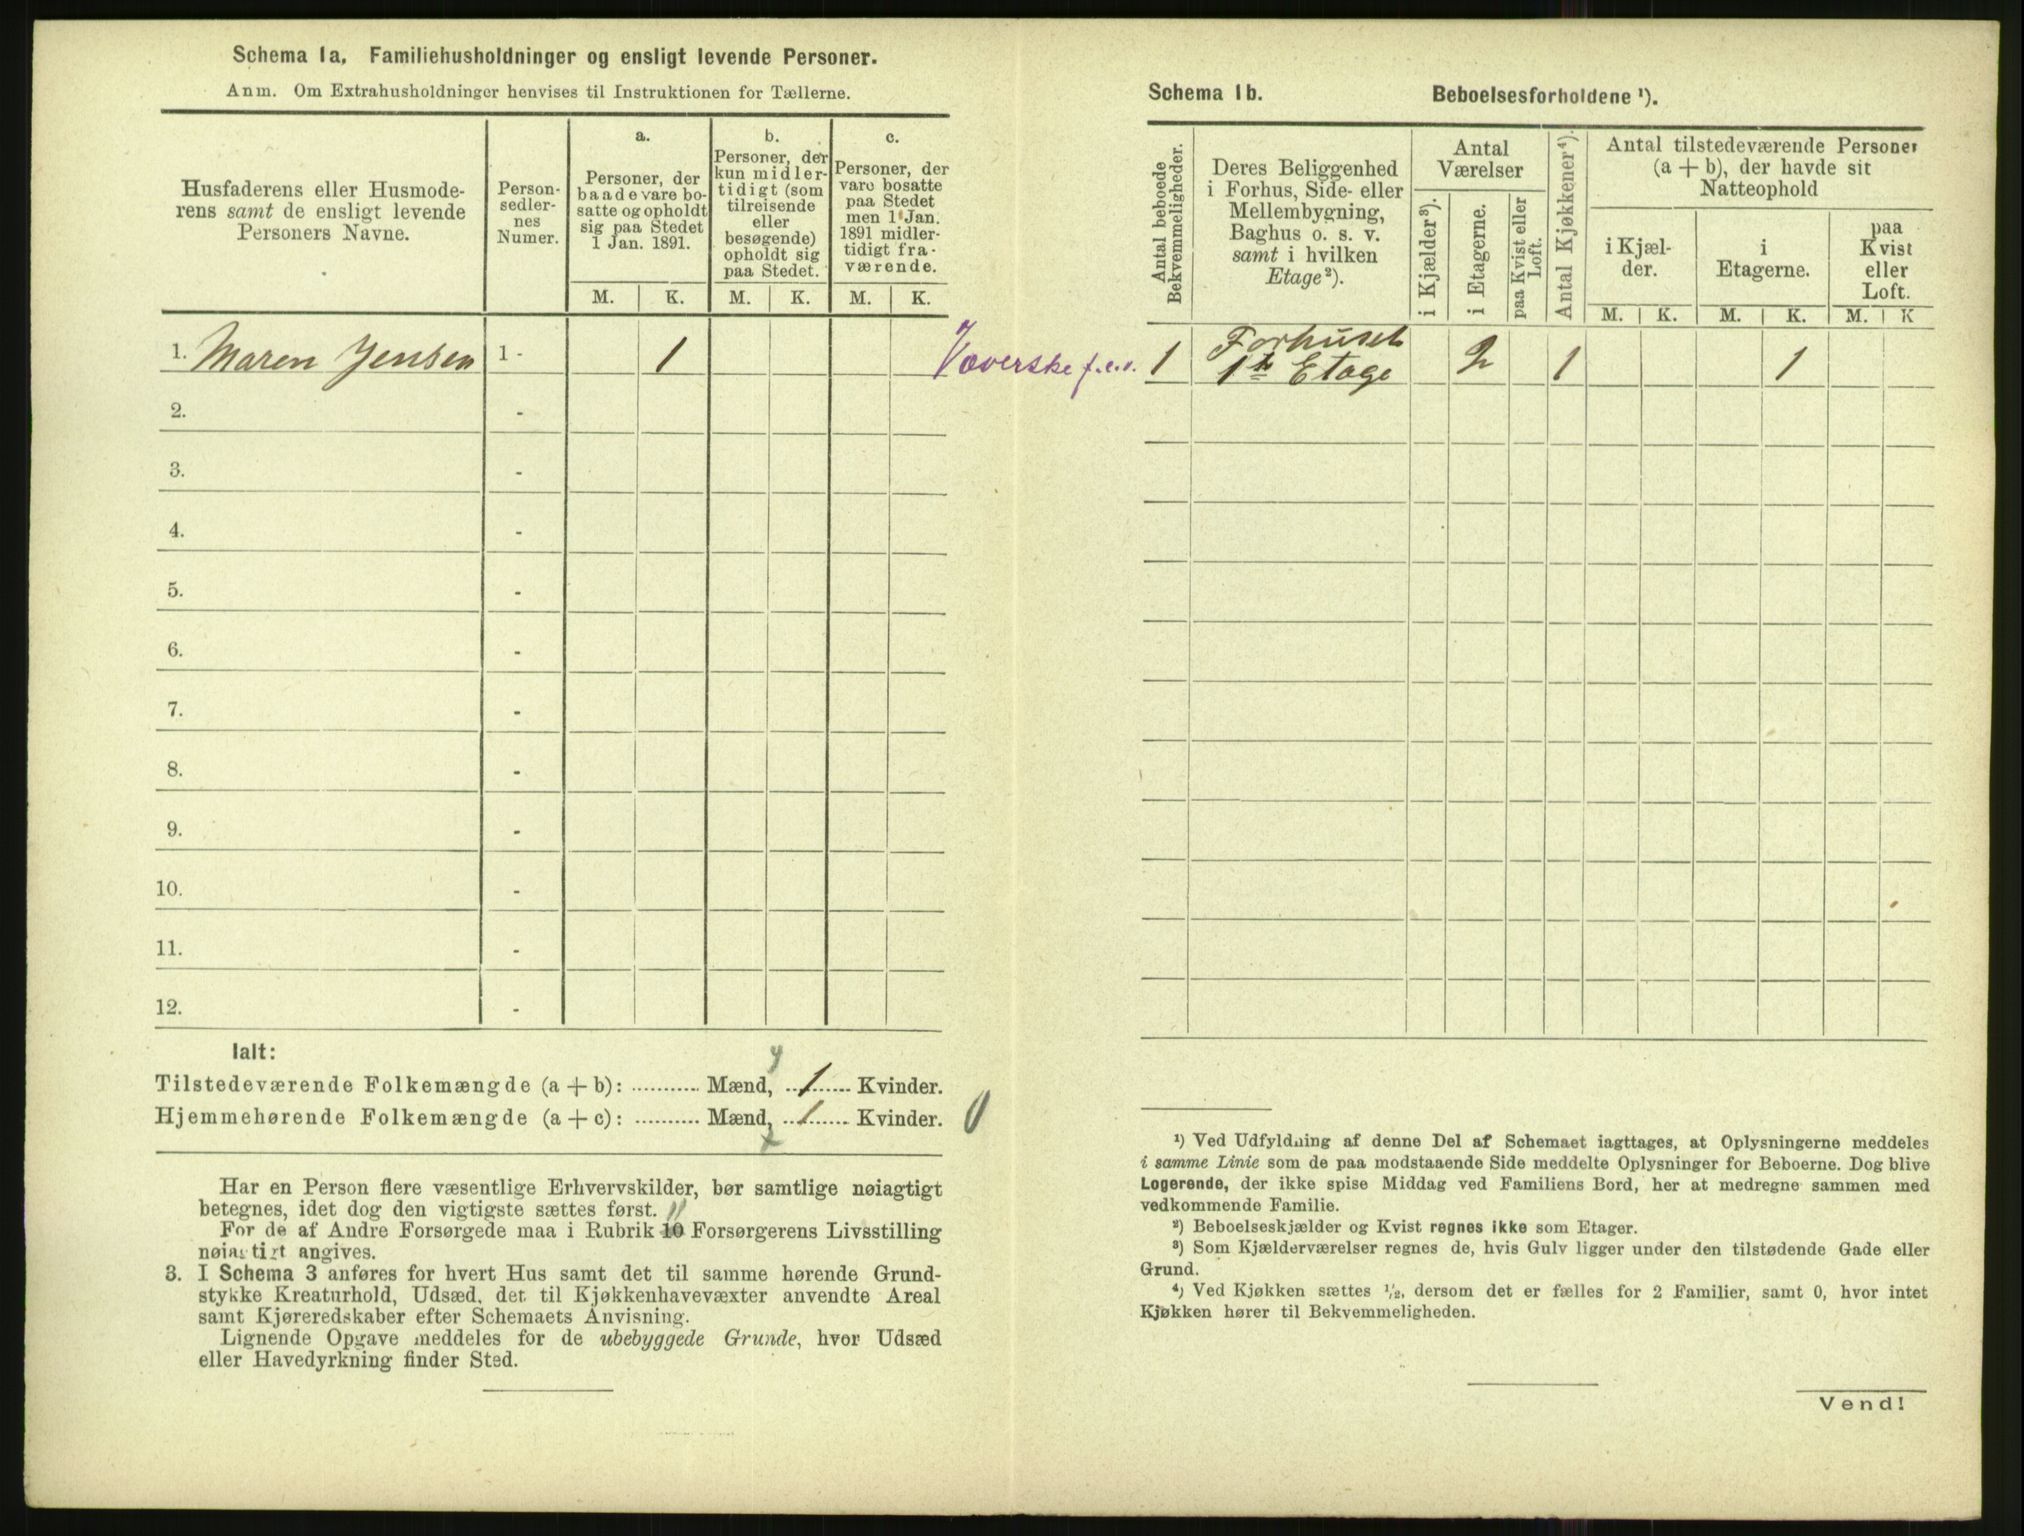 Schema 1a. Familiehusholdninger og ensligt levende Personer.
Anm. Om Extrahusholdninger henvises til Instruktionen for Tællerne.
Husfaderens eller Husmode-
rens samt de ensligt levende
Personers Navne.
Person-
sedler-
nes
Numer.
a.
Personer, der
baade vare bo-
satte og opholdt
sig paa Stedet
1 Jan. 1891.
M. K.
b.
Personer, der
kun midler-
tidigt (som
tilreisende
eller
besøgende)
opholdt sig
paa Stedet.
M. K.
c.
Personer, der
vare bosatte
paa Stedet
men 1 Jan.
1891 midler-
tidigt fra-
værende.
M. K.
1. Maren Jensen 1 - 1 Væverske f.e.v.
2. -
3. -
4. -
5. -
6. -
7. -
8. -
9. -
10. -
11. -
12. -
Ialt:
Tilstedeværende Folkemængde (a + b): .......... Mænd, 1 Kvinder.
Hjemmehørende Folkemængde (a + c): .......... Mænd, 1 Kvinder. 0
Har en Person flere væsentlige Erhvervskilder, bør samtlige nøiagtigt
betegnes, idet dog den vigtigste sættes først.
For de af Andre Forsørgede maa i Rubrik 10 11 Forsørgerens Livsstilling
nøiagtigt angives.
3. I Schema 3 anføres for hvert Hus samt det til samme hørende Grund-
stykke Kreaturhold, Udsæd, det til Kjøkkenhavevæxter anvendte Areal
samt Kjøreredskaber efter Schemaets Anvisning.
Lignende Opgave meddeles for de ubebyggede Grunde, hvor Udsæd
eller Havedyrkning finder Sted.
Schema 1b. Beboelsesforholdene ¹).
Antal beboede
Bekvemmeligheder.
Deres Beliggenhed
i Forhus, Side- eller
Mellembygning,
Baghus o. s. v.
samt i hvilken
Etage²).
Antal
Værelser
i Kjælder³).
i Etagerne.
paa Kvist eller
Loft.
Antal Kjøkkener⁴).
Antal tilstedeværende Personer
(a + b), der havde sit
Natteophold
i Kjæl-
der.
i
Etagerne.
paa
Kvist
eller
Loft.
M. K. M. K. M. K
1 Forhuset
1te Etage 2 1 1
¹) Ved Udfyldning af denne Del af Schemaet iagttages, at Oplysningerne meddeles
i samme Linie som de paa modstaaende Side meddelte Oplysninger for Beboerne. Dog blive
Logerende, der ikke spise Middag ved Familiens Bord, her at medregne sammen med
vedkommende Familie.
²) Beboelseskjælder og Kvist regnes ikke som Etager.
³) Som Kjælderværelser regnes de, hvis Gulv ligger under den tilstødende Gade eller
Grund.
⁴) Ved Kjøkken sættes ¹/₂, dersom det er fælles for 2 Familier, samt 0, hvor intet
Kjøkken hører til Bekvemmeligheden.
Vend!